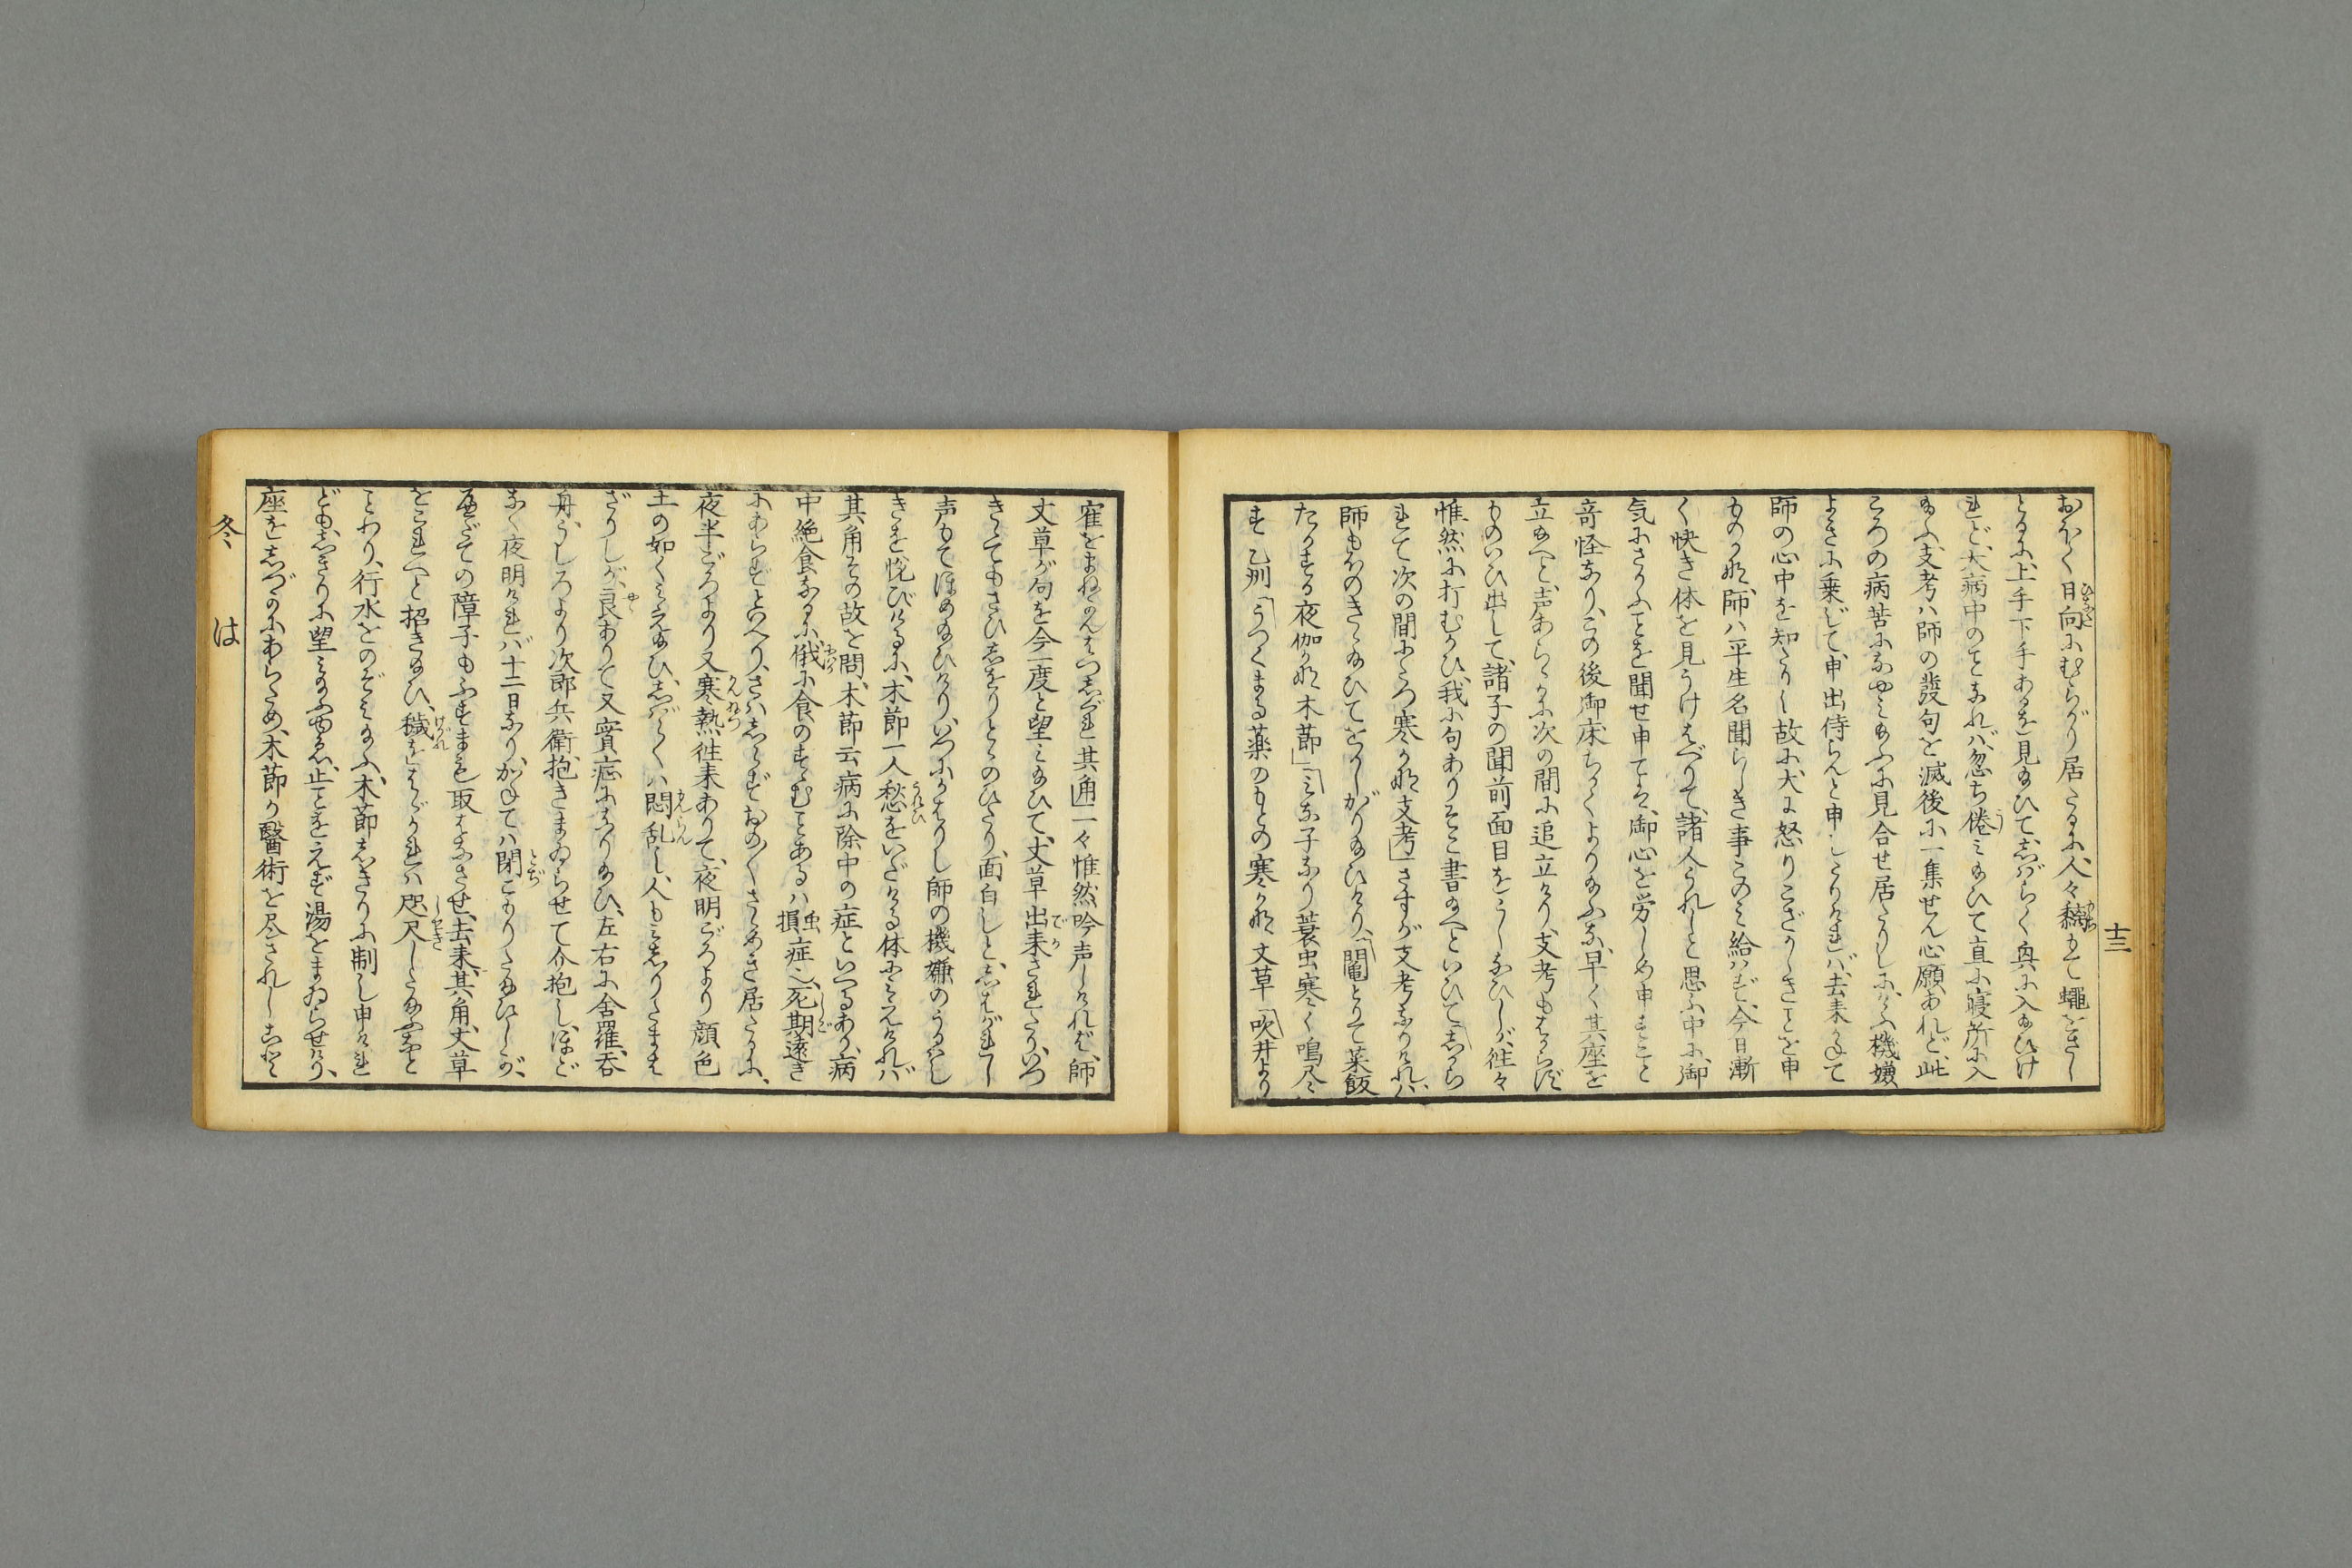 十三
おほく日向にむらがり居たるに、人々黐もて蠅をさし
とるに、上手下手あるを見給ひて、しばらく興に入給ひけ
れど、大病中のことなれば、忽ち倦み給ひて直に寝所に入
給ふ、支考ハ師の發句を滅後に一集せん心願あれど、此
ころの病苦になやみ給ふに見合せ居たりしに、けふ機嫌
よきに乗じて、申出侍らんと申しこりければ、去来かねて
師の心中を知たりし故に、大に怒りこざかしきことを申
ものかな、師ハ平生名聞らしき事このミ給ハず、今日漸
く快き体を見うけはべりて、諸人うれしと思ふ中に、御
気にさかふことを聞せ申ては、御心を労しめ申すこと
奇怪なり、この後御床ちかくよりなふな、早く其座を
立給へと、声あらゝかに次の間に追立けり、支考もはからず
ものいひ出して、諸子の聞前面目をうしなひしが、徃々
惟然に打むかひ、我に句ありそこ書給へといひて「しから
れて次の間に出る寒さかな 支考」さすが支考なりけれハ、
師もほのきゝ給ひてをかしがり給ひけり、「鬮とりて菜飯
たかする夜伽かな 木節」「ミな子なり蓑虫寒く鳴尽
す 乙州「うづくまる薬のもとの寒さかな 丈草「吹井より
寉をまねかんはつしぐれ 其角」一々惟然吟声しければ、師
丈草が句を今一度と望ミ給ひて、丈草出来されたり、いつ
きゝてもさひしをりとゝのひたり、面白しと、しはがれし
声もてほめ給ひけり、いつにかはりし師の機嫌のうるはし
きを悦びけるに、木節一人愁をいだける体に見えければ
其角その故を問、木節云病に除中の症といへるあり、病
中絶食なるに、俄に食のすゝむことあるハ虫損症也、死期遠き
にあらずといへり、さハしらずおの〳〵さゞめき居たるに、
夜半ごろより又寒熱徃来ありて、夜明ごろより顔色
土の如くミえ給ひ、しばらくハ悶乱し、人もミしりたまは
ざりしが、良ありて又實症になり給ひ、左右に舎羅、呑
舟うしろより次郎兵衛、抱きまゐらせて介抱し、ほど
なく夜明ければ十二日なり、かねてハ閉こもりたまひしが、
屋だての障子もふすまも取はなさせ、去来、其角、丈草
をこれへと招き給ひ、穢をはゞかれハ咫尺したまふなと
ことわり、行水をのぞミ給ふ、木節しきりに制し申けれ
ども、しきりに望ミ給ふ由ゑ、止ことをえず湯をまゐらせけり、
座をしづかにあらため、木節が醫術を尽されしこと
冬 は